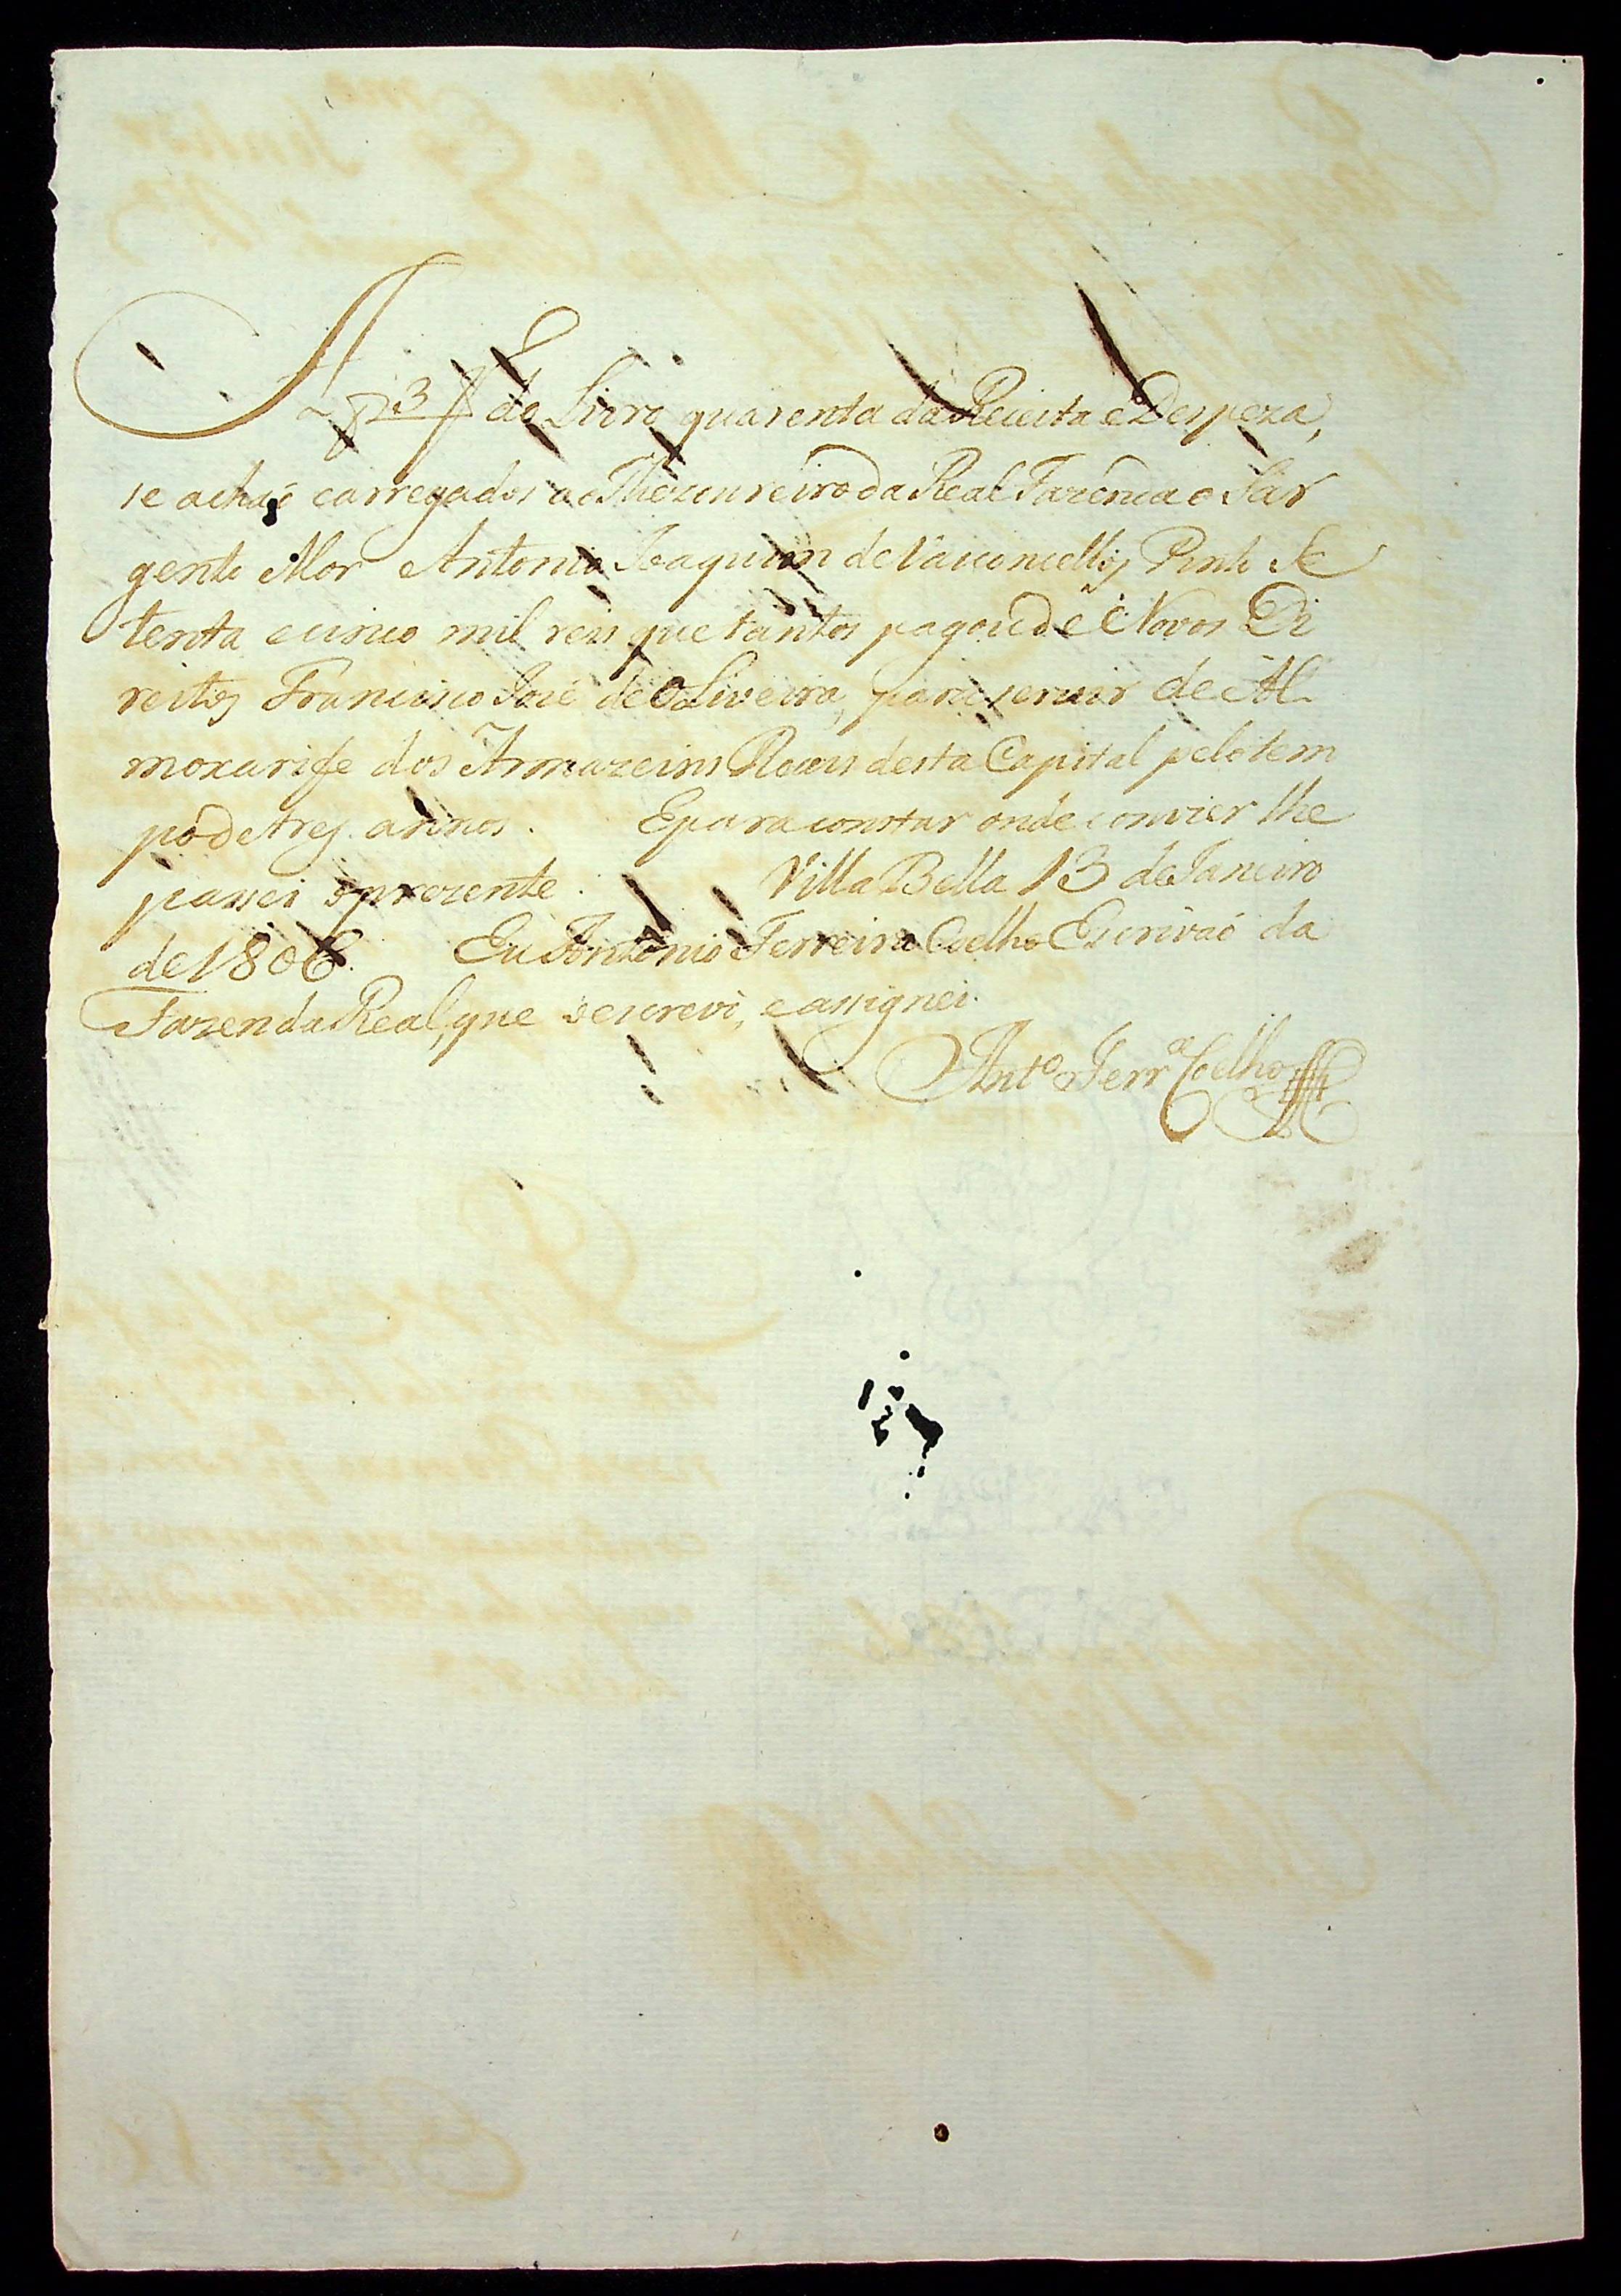 A f 3 do Livro quarenta da Receita e Despeza,
se achaõ carregados ao Thezoureiro da Real Fazenda o Sar
gento Mor Antonio Joaquim de Vasconcellos Pinto Se
tenta e cinco mil reis que tantos pagou de Novos Di
reitos Francisco José de Oliveira, para servir de Al
moxarife dos Armazeins Reaes desta Capital pelo tem
po de tres annos. E para constar onde convier lhe
passei o prezente. Villa Bella 13 de Janeiro
de 1806. Eu Antonio Ferreira Coelho Escrivaõ da
Fazenda Real, que o escrevi, e assignei.
Antº Ferrª Coelho